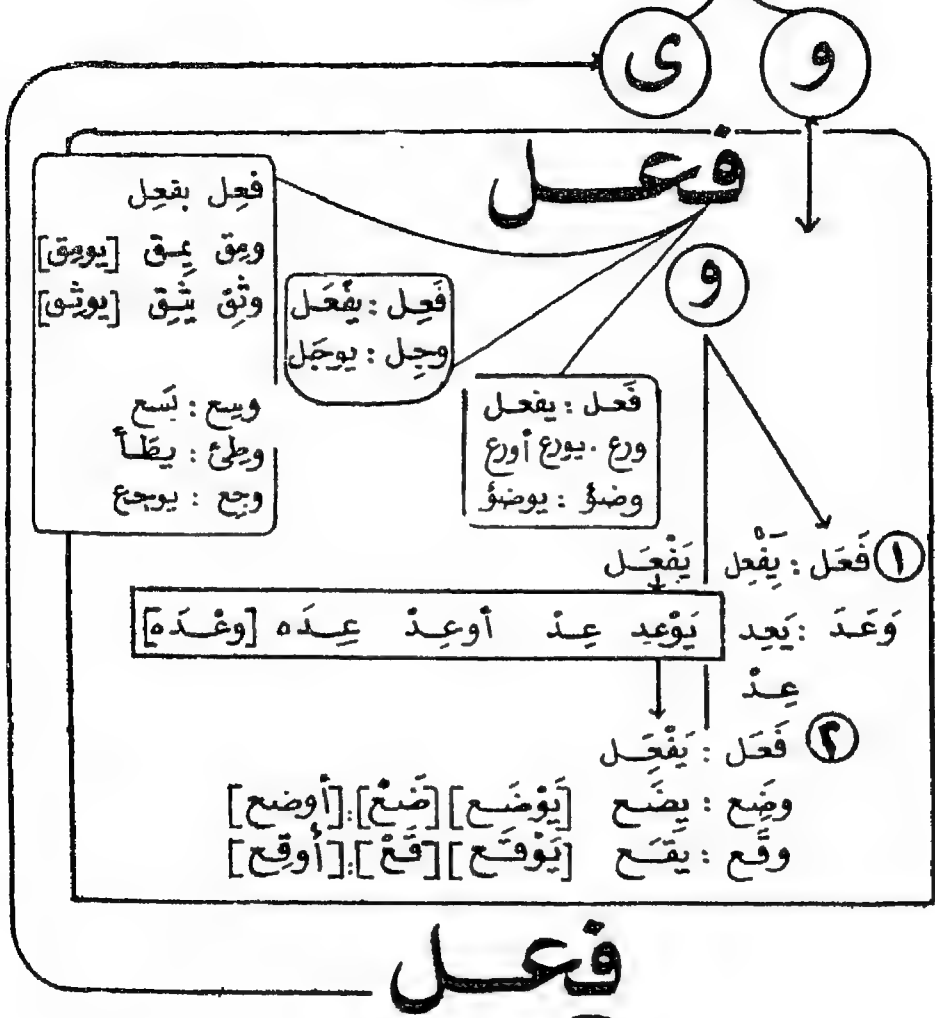 و ى
فعل
و
فَعِل بفعِل
ومِق يمِـق [يومِق]
وثِق يَثِـق [يوثِق]
وسِع : يَسَع
وطِئ : يطَـأ
وجِع : يوجع
فَعِل : يفْعَـل
وجِـل : يوجَل
فَعـل : يفعـل
ورع . يورع أورع
وضؤ : يوضؤ
١ فَعَل : يَفْعِل يَفْعَـل
وَعَـدَ : يَعِد يَوْعِد عِـدْ أوعِـدْ عِـدَه [وعْـدَه]
عِـدْ
٢ فَعَـل : يَفْعَـل
وضِع : يضَـع [يَوْضَـع] [ضَـعْ] : [أوضع]
وقَـع : يقَـع [يَوْقَـع] [قَـعْ] : [أوقِع]
فعـل